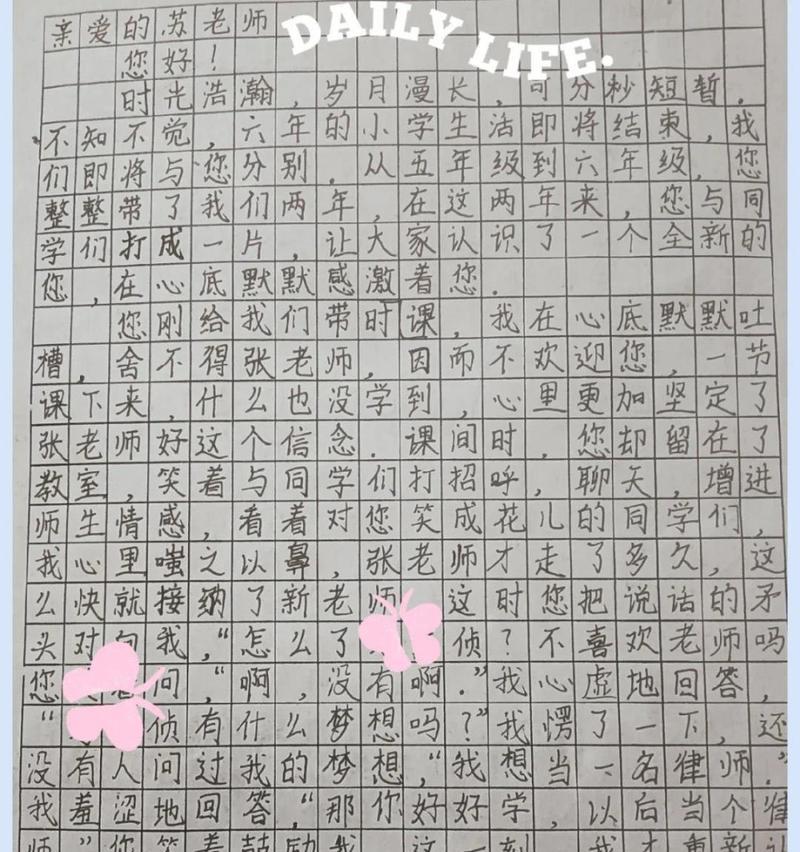 DAILY LIFE.
亲爱的苏老师
您好！
时光浩瀚，岁月漫长，可分秒短暂．
不知不觉，六年的小学生活即将结束，我
们即将与您分别．从五年级到六年级，您
整整带了我们两年，在这两年来，您与同
学们打成一片，让大家认识了一个全新的
您，在心底默默感激着您．
您刚给我们带时课，我在心底默默吐
槽，舍不得张老师，因而不欢迎您，一节
课下来，什么也没学到，心里更加坚定了
张老师好这个信念．课间时，您却留在了
教室，笑着与同学们打招呼，聊天，增进
师生情感，看着对您笑成花儿的同学们，
我心里嗤之以鼻，张老师才走了多久，这
么快就接纳了新老师 这时您把说话的矛
头对向我，“怎么了 侦？不喜欢老师吗
您 问，“啊，没有啊．”我心虚地回答，
“ 侦有什么梦想吗？”我愣了一下，还
没有人问过我的梦想，“我想当一名律师．”
我羞涩地回答，“那你好好学，以后当个律
师．”您笑着鼓励我 这一刻 我才重新认